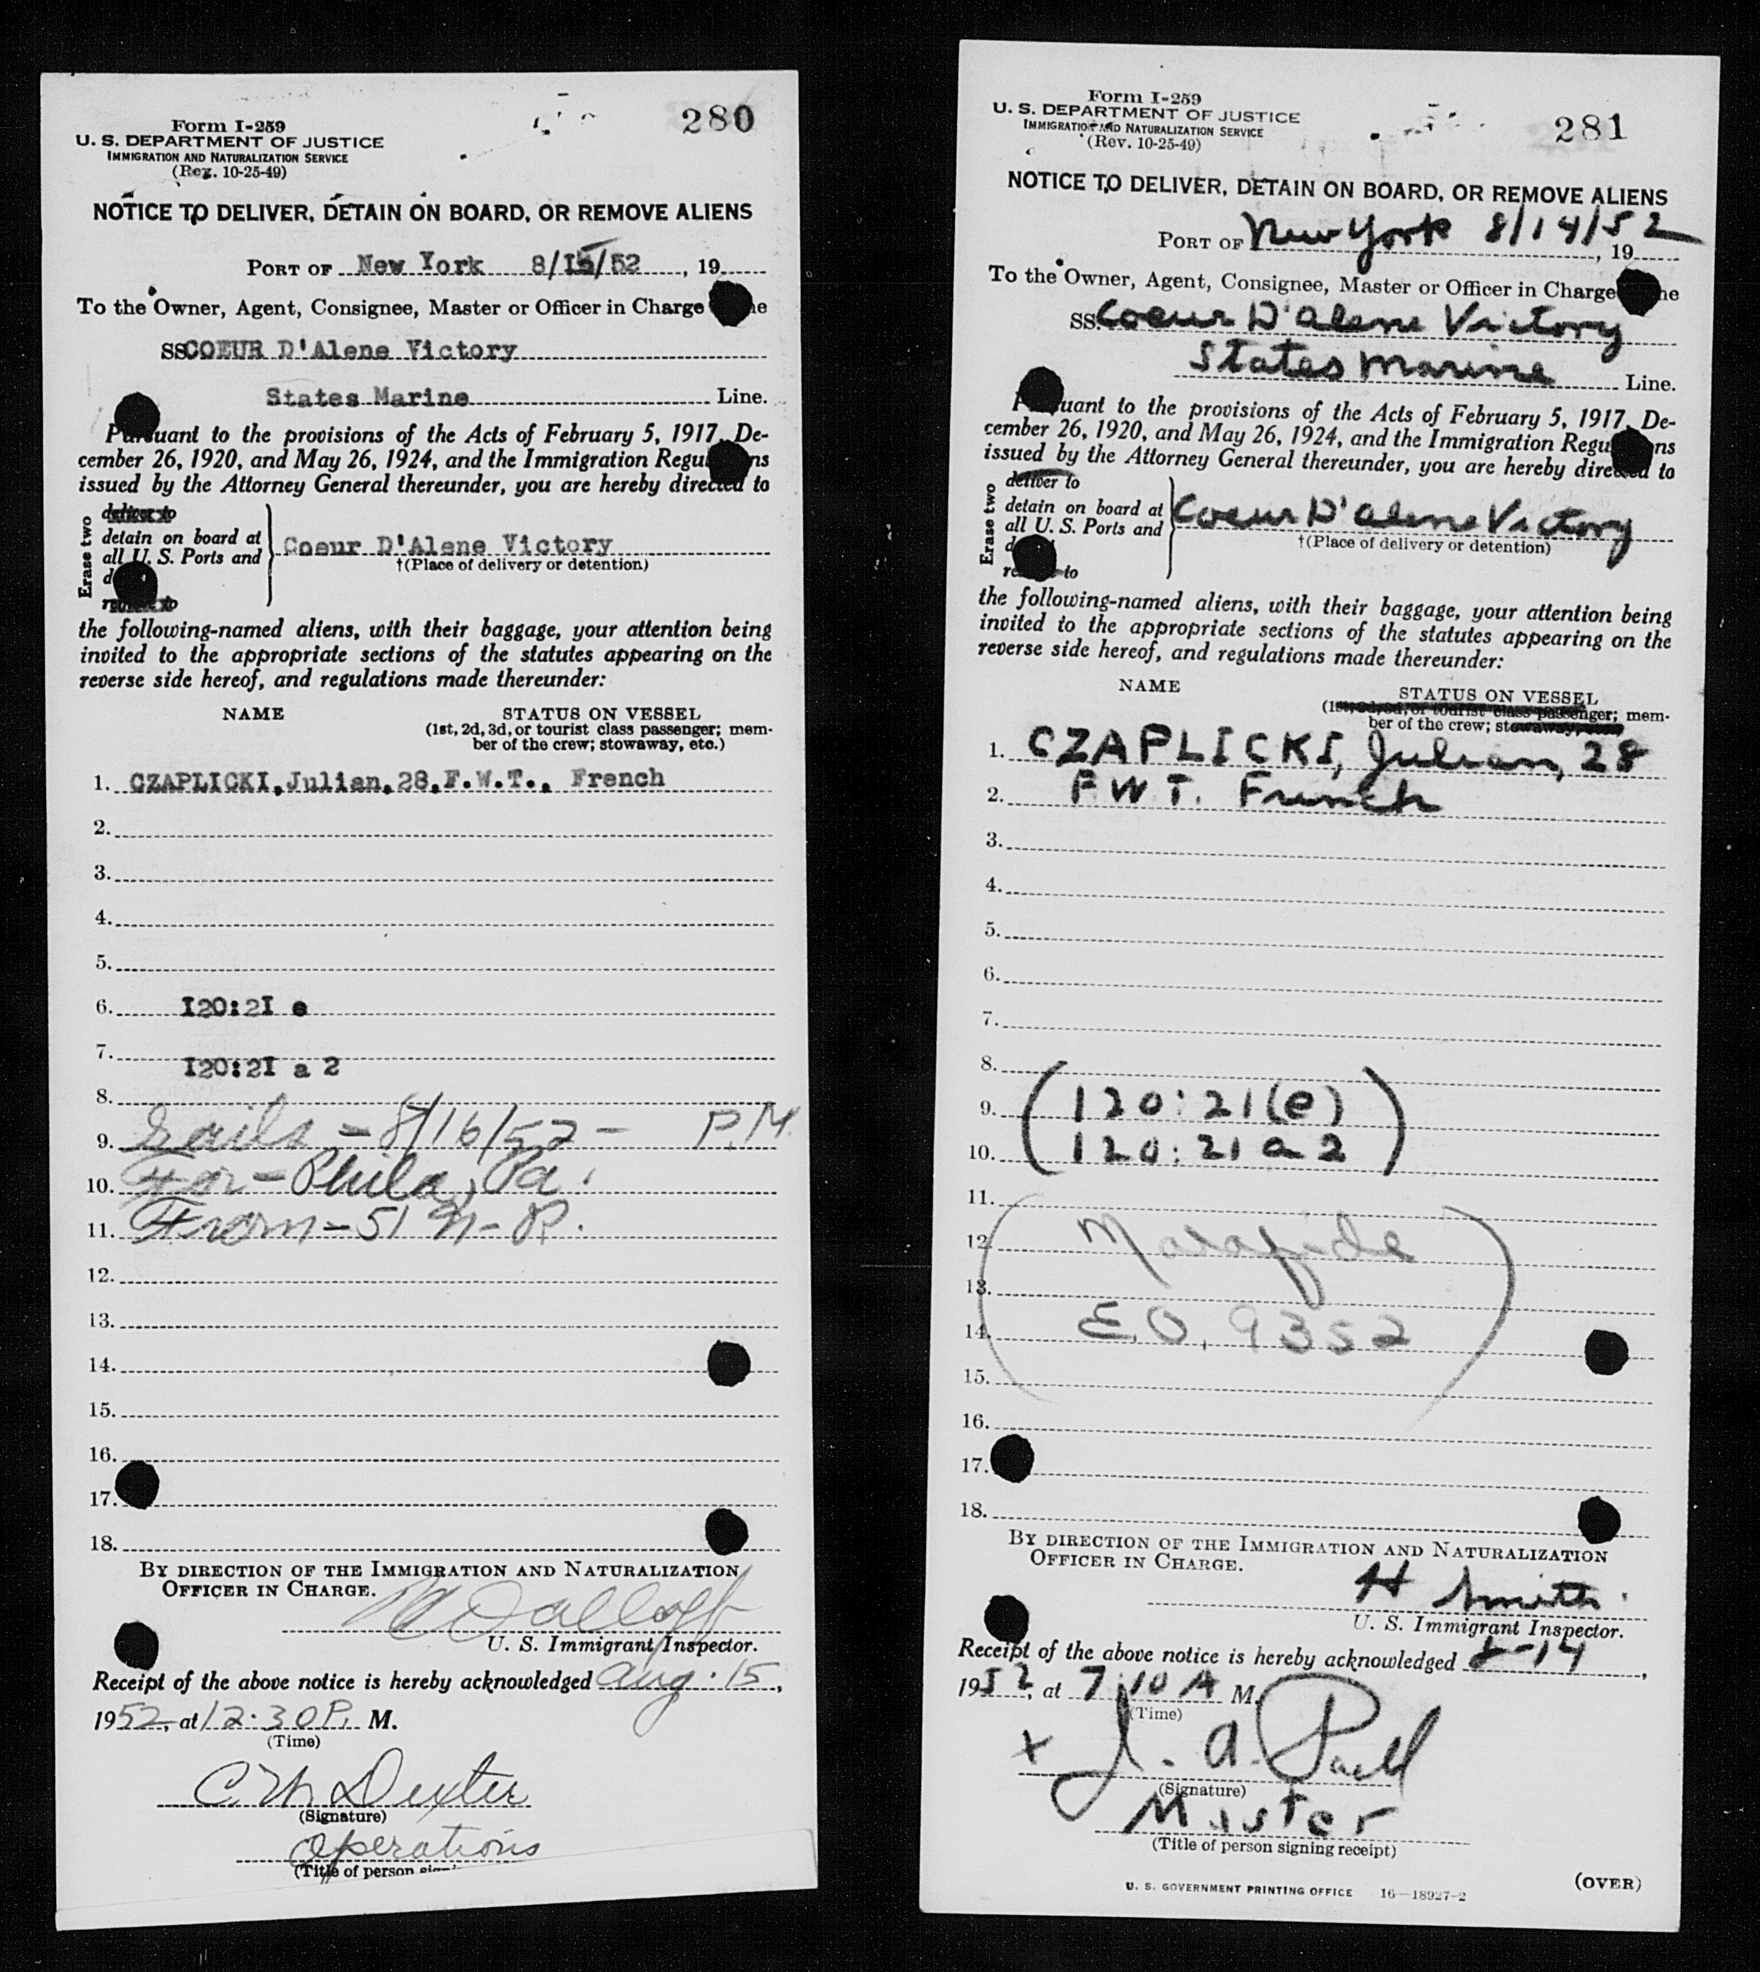 280
Form I-259
U. S. DEPARTMENT OF JUSTICE
IMMIGRATION AND NATURALIZATION SERVICE
(Rev. 10-25-49)
NOTICE TO DELIVER, DETAIN ON BOARD, OR REMOVE ALIENS
PORT OF New York 8/15/52, 19
To the Owner, Agent, Consignee, Master or Officer in Charge
SS COEUR D'Alene Victory
States Marine Line.
Pursuant to the provisions of the Acts of February 5, 1917, De-
cember 26, 1920, and May 26, 1924, and the Immigration Regulations
issued by the Attorney General thereunder, you are hereby directed to
Erase two
deliver to
detain on board at
all U. S. Ports and
remove to
Coeur D'Alene Victory
†(Place of delivery or detention)
the following-named aliens, with their baggage, your attention being
invited to the appropriate sections of the statutes appearing on the
reverse side hereof, and regulations made thereunder:
NAME STATUS ON VESSEL
(1st, 2d, 3d, or tourist class passenger; mem-
ber of the crew; stowaway, etc.)
1. CZAPLICKI, Julian, 28, F.W.T., French
2.
3.
4.
5.
6. I20:2I e
7.
I20:2I a 2
8.
9. Sails - 8/16/52 - P.M.
10. For - Phila, Pa.
11. From - 51 N-R.
12.
13.
14.
15.
16.
17.
18.
BY DIRECTION OF THE IMMIGRATION AND NATURALIZATION
OFFICER IN CHARGE.
U. S. Immigrant Inspector.
Receipt of the above notice is hereby acknowledged Aug. 15,
1952, at 12:30 P. M.
(Time)
C. W. Dexter
(Signature)
Operations
(Title of person
281
Form I-259
U. S. DEPARTMENT OF JUSTICE
IMMIGRATION AND NATURALIZATION SERVICE
(Rev. 10-25-49)
NOTICE TO DELIVER, DETAIN ON BOARD, OR REMOVE ALIENS
PORT OF New York 8/14/52, 19
To the Owner, Agent, Consignee, Master or Officer in Charge
SS. Coeur D'Alene Victory
States Marine Line.
Pursuant to the provisions of the Acts of February 5, 1917, De-
cember 26, 1920, and May 26, 1924, and the Immigration Regulations
issued by the Attorney General thereunder, you are hereby directed to
Erase two
deliver to
detain on board at
all U. S. Ports and
remove to
Coeur D'Alene Victory
†(Place of delivery or detention)
the following-named aliens, with their baggage, your attention being
invited to the appropriate sections of the statutes appearing on the
reverse side hereof, and regulations made thereunder:
NAME STATUS ON VESSEL
(1st, 2d, 3d, or tourist class passenger; mem-
ber of the crew; stowaway,
1. CZAPLICKI, Julian, 28
2. F W T. French
3.
4.
5.
6.
7.
8.
9. (120:21(e)
10. 120:21 a 2)
11.
12. (Malafide
13.
14. E.O. 9352)
15.
16.
17.
18.
BY DIRECTION OF THE IMMIGRATION AND NATURALIZATION
OFFICER IN CHARGE.
H Smith
U. S. Immigrant Inspector.
Receipt of the above notice is hereby acknowledged 8-14,
1952, at 7:10 A M.
(Time)
x J. A.
(Signature)
Master
(Title of person signing receipt)
(OVER)
U. S. GOVERNMENT PRINTING OFFICE 16-18927-2